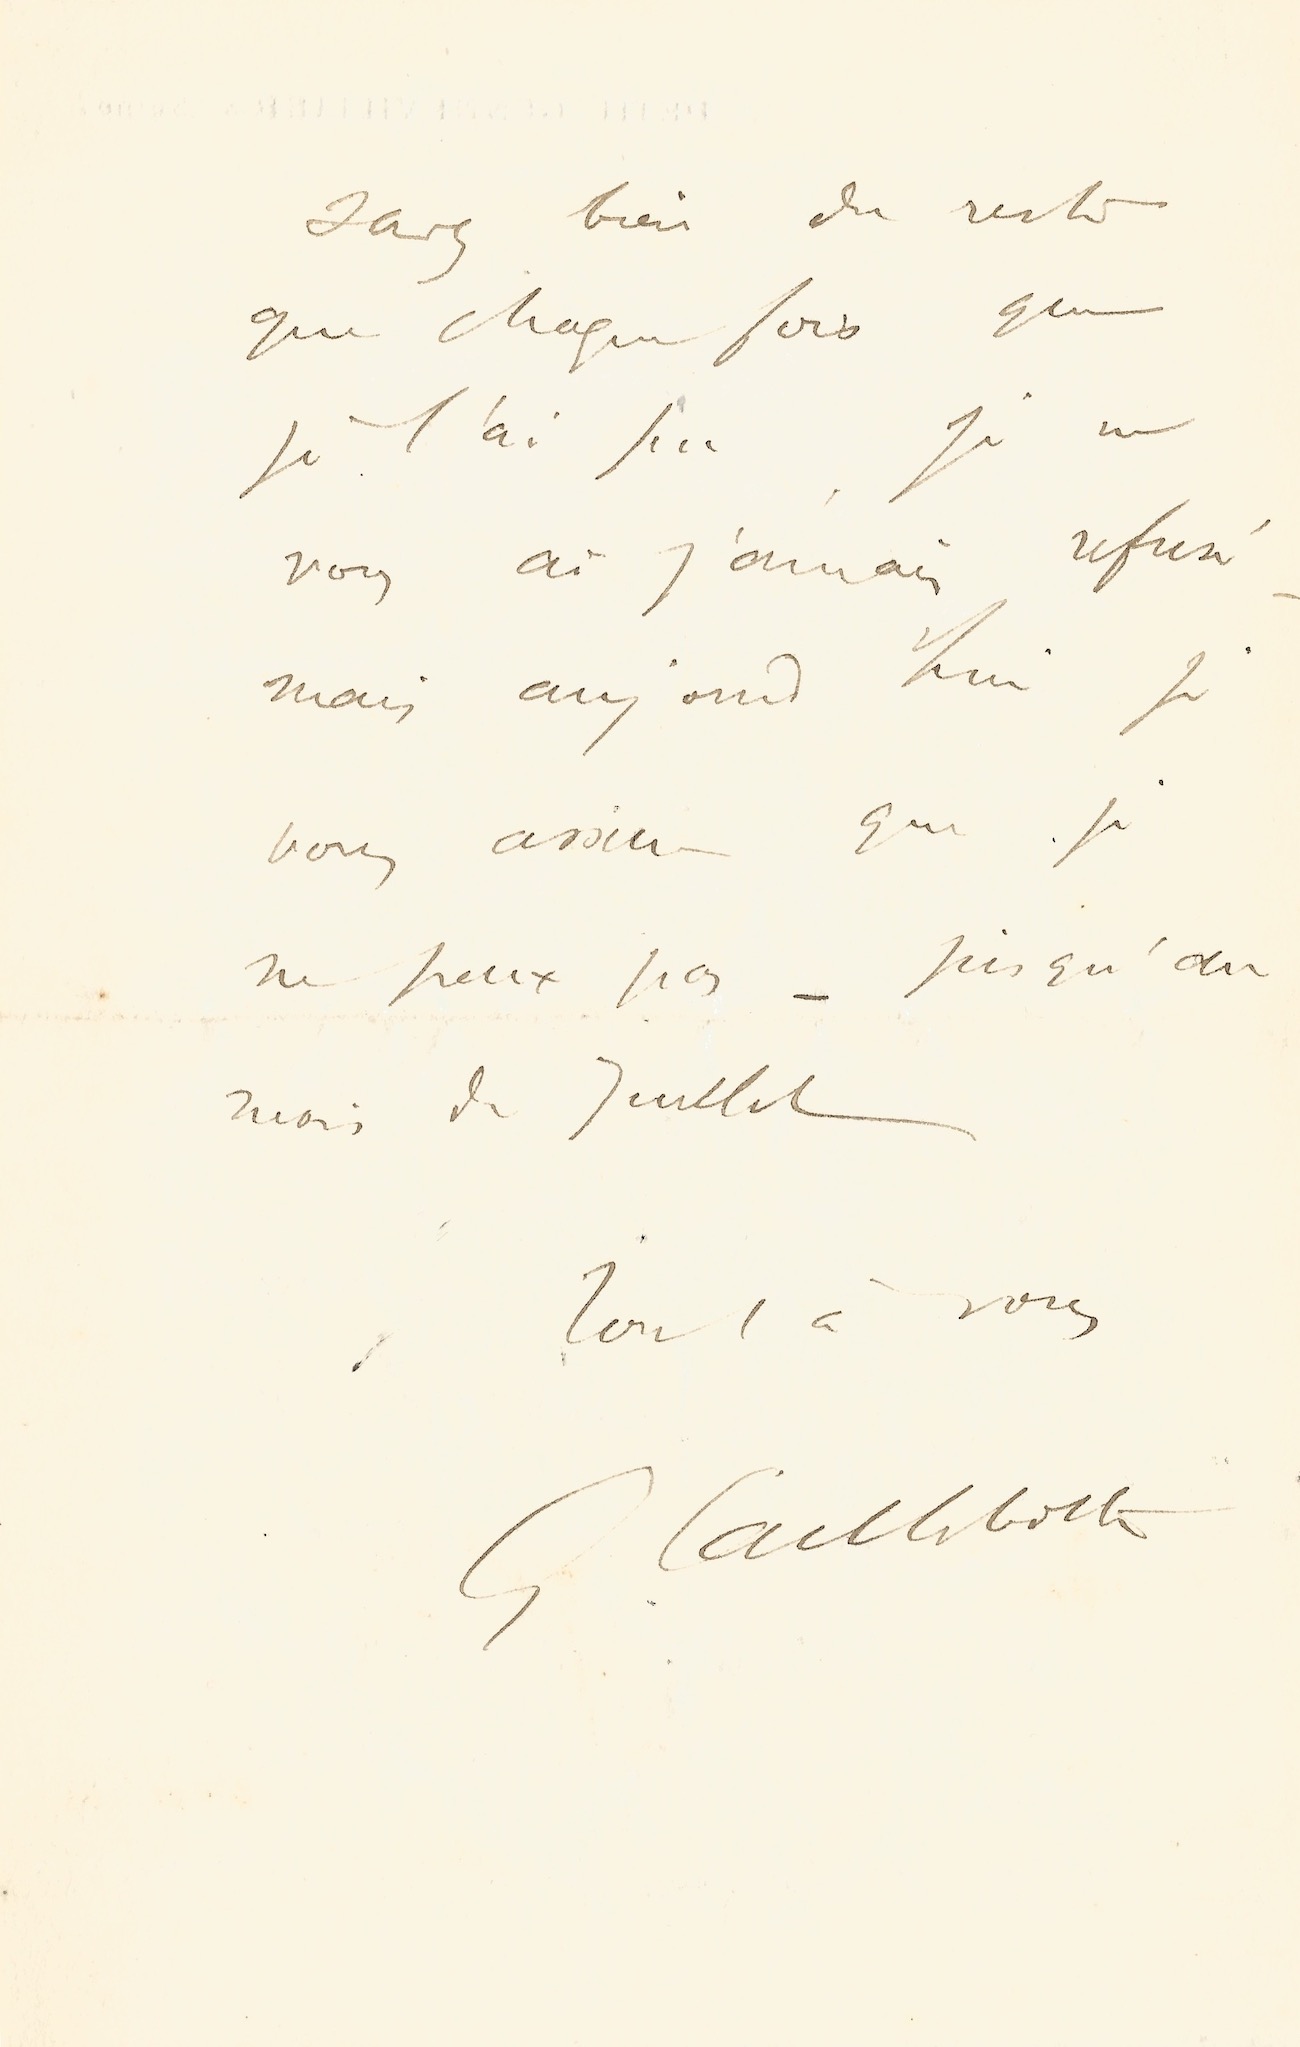 savez bien du reste
que chaque fois que
je l'ai pu je ne
vous ai jamais refusé _
mais aujourd'hui je
vous assure que je
ne peux pas _ jusqu'au
mois de Juillet
Tout à vous
G. Caillebotte